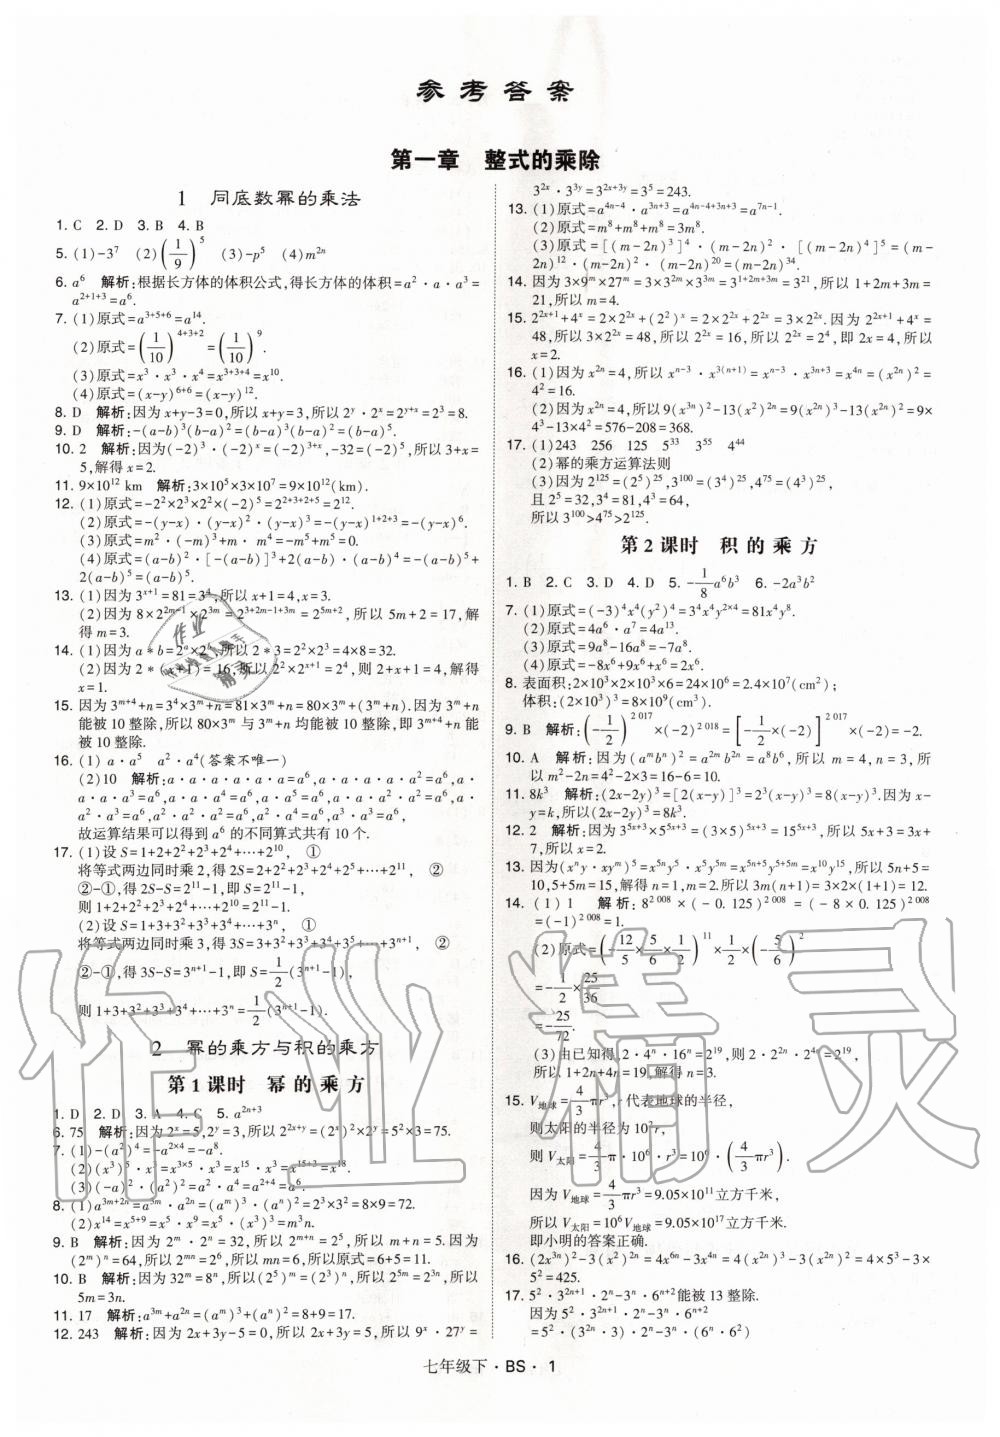 参考答案
第一章 整式的乘除
1 同底数幂的乘法
1. C 2. D 3. B 4. B
5. (1)-3⁷ (2)(1/9)⁵ (3)-p⁵ (4)m²ⁿ
6. a⁶ 解析:根据长方体的体积公式,得长方体的体积=a²·a·a³=
a²⁺¹⁺³=a⁶.
7. (1)原式=a³⁺⁵⁺⁶=a¹⁴.
(2)原式=(1/10)⁴⁺³⁺²=(1/10)⁹.
(3)原式=x³·x³·x⁴=x³⁺³⁺⁴=x¹⁰.
(4)原式=(x-y)⁶⁺⁶=(x-y)¹².
8. D 解析:因为x+y-3=0,所以x+y=3,所以2ʸ·2ˣ=2ʸ⁺ˣ=2³=8.
9. D 解析:-(a-b)³(b-a)²=(b-a)³(b-a)²=(b-a)⁵.
10. 2 解析:因为(-2)³·(-2)ˣ=(-2)³⁺ˣ,-32=(-2)⁵,所以3+x=
5,解得x=2.
11. 9×10¹² km 解析:3×10⁵×3×10⁷=9×10¹²(km).
12. (1)原式=-2²×2³×2²×(-2)⁵=2²⁺³⁺²⁺⁵=2¹².
(2)原式=-(y-x)·(y-x)²·(y-x)³=-(y-x)¹⁺²⁺³=-(y-x)⁶.
(3)原式=m²·(-m)³+m·m⁴=-m⁵+m⁵=0.
(4)原式=(a-b)²·[-(a-b)³]+2(a-b)·(a-b)⁴=-(a-b)⁵+
2(a-b)⁵=(a-b)⁵.
13. (1)因为3ˣ⁺¹=81=3⁴,所以x+1=4,x=3.
(2)因为8×2²ᵐ⁻¹×2³ᵐ=2³⁺²ᵐ⁻¹⁺³ᵐ=2⁵ᵐ⁺²,所以5m+2=17,解
得m=3.
14. (1)因为a*b=2ᵃ×2ᵇ,所以2*3=2²×2³=4×8=32.
(2)因为2*(x+1)=16,所以2²×2ˣ⁺¹=2⁴,则2+x+1=4,解得
x=1.
15. 因为3ᵐ⁺⁴+n=3⁴×3ᵐ+n=81×3ᵐ+n=80×3ᵐ+(3ᵐ+n).因为3ᵐ+n
能被10整除,所以80×3ᵐ与3ᵐ+n均能被10整除,即3ᵐ⁺⁴+n能
被10整除.
16. (1)a·a⁵ a²·a⁴(答案不唯一)
(2)10 解析:a·a·a·a·a·a=a⁶,a·a·a·a·a²=a⁶,a·
a·a·a³=a⁶,a·a·a²·a²=a⁶,a·a·a⁴=a⁶,a·
a²·a³=a⁶,a·a⁵=a⁶,a²·a⁴=a⁶,a³·a³=a⁶,
故运算结果可以得到a⁶的不同算式共有10个.
17. (1)设S=1+2+2²+2³+2⁴+…+2¹⁰, ①
将等式两边同时乘2,得2S=2+2²+2³+2⁴+…+2¹¹, ②
②-①,得2S-S=2¹¹-1,即S=2¹¹-1,
则1+2+2²+2³+2⁴+…+2¹⁰=2¹¹-1.
(2)设S=1+3+3²+3³+3⁴+…+3ⁿ, ①
将等式两边同时乘3,得3S=3+3²+3³+3⁴+…+3ⁿ⁺¹, ②
②-①,得3S-S=3ⁿ⁺¹-1,即S=1/2(3ⁿ⁺¹-1),
则1+3+3²+3³+3⁴+…+3ⁿ=1/2(3ⁿ⁺¹-1).
2 幂的乘方与积的乘方
第1课时 幂的乘方
1. D 2. D 3. A 4. C 5. a²ⁿ⁺³
6. 75 解析:因为2ˣ=5,2ʸ=3,所以2²ˣ⁺ʸ=(2ˣ)²×2ʸ=5²×3=75.
7. (1)-(a²)⁴=-a²ˣ⁴=-a⁸.
(2)(x³)⁵·x³=x³ˣ⁵·x³=x¹⁵·x³=x¹⁵⁺³=x¹⁸.
(3)(-a)²·(a²)²=a²·a⁴=a²⁺⁴=a⁶.
8. (1)a³ᵐ⁺²ⁿ=a³ᵐ·a²ⁿ=(aᵐ)³·(aⁿ)²=2³×3²=8×9=72.
(2)x¹⁴=x⁵⁺⁹=x⁵·x⁹=x⁵·(x³)³=m³n.
9. B 解析:因为2ᵐ·2ⁿ=32,所以2ᵐ⁺ⁿ=2⁵,所以m+n=5.因为
(2ᵐ)ⁿ=64,所以2ᵐⁿ=2⁶,所以mn=6,所以原式=6+5=11.
10. B 解析:因为32ᵐ=8ⁿ,所以(2⁵)ᵐ=(2³)ⁿ,所以2⁵ᵐ=2³ⁿ,所以
5m=3n.
11. 17 解析:a³ᵐ+a²ⁿ=(aᵐ)³+(aⁿ)²=8+9=17.
12. 243 解析:因为2x+3y-5=0,所以2x+3y=5,所以9ˣ·27ʸ=
3²ˣ·3³ʸ=3²ˣ⁺³ʸ=3⁵=243.
13. (1)原式=a⁴ⁿ⁻⁴·a³ⁿ⁺³=a⁴ⁿ⁻⁴⁺³ⁿ⁺³=a⁷ⁿ⁻¹.
(2)原式=m⁸+m⁸+m⁸=3m⁸.
(3)原式=[(m-2n)³]⁴·(m-2n)²·[(m-2n)⁴]⁵=(m-
2n)¹²·(m-2n)²·(m-2n)²⁰=(m-2n)³⁴.
14. 因为3×9ᵐ×27ᵐ=3×3²ᵐ×3³ᵐ=3¹⁺²ᵐ⁺³ᵐ=3²¹,所以1+2m+3m=
21,所以m=4.
15. 2²ˣ⁺¹+4ˣ=2×2²ˣ+(2²)ˣ=2×2²ˣ+2²ˣ=3×2²ˣ.因为2²ˣ⁺¹+4ˣ=
48,所以3×2²ˣ=48,所以2²ˣ=16,所以2²ˣ=2⁴,即2x=4,所以
x=2.
16. (1)因为x²ⁿ=4,所以xⁿ⁻³·x³⁽ⁿ⁺¹⁾=xⁿ⁻³·x³ⁿ⁺³=x⁴ⁿ=(x²ⁿ)²=
4²=16.
(2)因为x²ⁿ=4,所以9(x³ⁿ)²-13(x²)²ⁿ=9(x²ⁿ)³-13(x²ⁿ)²=9×
4³-13×4²=576-208=368.
17. (1)243 256 125 5³³ 3⁵⁵ 4⁴⁴
(2)幂的乘方运算法则
(3)因为2¹²⁵=(2⁵)²⁵,3¹⁰⁰=(3⁴)²⁵,4⁷⁵=(4³)²⁵,
且2⁵=32,3⁴=81,4³=64,
所以3¹⁰⁰>4⁷⁵>2¹²⁵.
第2课时 积的乘方
1. B 2. C 3. D 4. D 5. -1/8a⁶b³ 6. -2a³b²
7. (1)原式=(-3)⁴x⁴(y²)⁴=3⁴x⁴y²ˣ⁴=81x⁴y⁸.
(2)原式=4a⁶·a⁷=4a¹³.
(3)原式=9a⁸-16a⁸=-7a⁸.
(4)原式=-8x⁶+9x⁶+x⁶=2x⁶.
8. 表面积:2×10³×2×10³×6=24×10⁶=2.4×10⁷(cm²);
体积:(2×10³)³=8×10⁹(cm³).
9. B 解析:(-1/2)²⁰¹⁷×(-2)²⁰¹⁸=[-1/2×(-2)]²⁰¹⁷×(-2)=-2.
10. A 解析:因为(aᵐbⁿ)²=a²ᵐb²ⁿ=a⁸b⁶,所以m=4,n=3,所
以m²-2n=4²-2×3=16-6=10.
11. 8k³ 解析:(2x-2y)³=[2(x-y)]³=2³(x-y)³=8(x-y)³.因为x-
y=k,所以(2x-2y)³=8k³.
12. 2 解析:因为3⁵ˣ⁺³×5⁵ˣ⁺³=(3×5)⁵ˣ⁺³=15⁵ˣ⁺³,所以5x+3=3x+
7,所以x=2.
13. 因为(xⁿy·xyᵐ)⁵=x⁵ⁿy⁵·x⁵y⁵ᵐ=x⁵ⁿ⁺⁵y⁵⁺⁵ᵐ=x¹⁰y¹⁵,所以5n+5=
10,5+5m=15,解得n=1,m=2.所以3m(n+1)=3×2×(1+1)=12.
14. (1)1 解析:8²⁰⁰⁸×(-0.125)²⁰⁰⁸=(-8×0.125)²⁰⁰⁸
=(-1)²⁰⁰⁸=1.
(2)原式=(-12/5×5/6×1/2)¹¹×1/2×(-5/6)²
=-1/2×25/36
=-25/72.
(3)由已知得,2·4ⁿ·16ⁿ=2¹⁹,则2·2²ⁿ·2⁴ⁿ=2¹⁹,
所以1+2n+4n=19.解得n=3.
15. V地球=4/3πr³,r代表地球的半径,
则太阳的半径为10²r,
则V太阳=4/3·π·10⁶·r³=10⁶·(4/3πr³).
因为V地球=4/3πr³=9.05×10¹¹立方千米,
所以V太阳=10⁶V地球=9.05×10¹⁷立方千米.
即小明的答案正确.
16. (2x³ⁿ)²-3(x²)²ⁿ=4x⁶ⁿ-3x⁴ⁿ=4(x²ⁿ)³-3(x²ⁿ)²=4×5³-3×
5²=425.
17. 5²·3²ⁿ⁺¹·2ⁿ-3ⁿ·6ⁿ⁺²能被13整除.
因为5²·3²ⁿ⁺¹·2ⁿ-3ⁿ·6ⁿ⁺²
=5²·(3²ⁿ·3)·2ⁿ-3ⁿ·(6ⁿ·6²)
七年级下·BS·1
作业精灵